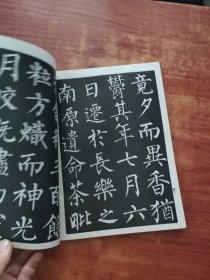 竟夕而異香猶
欝其年七月六
日遷於長樂之
南原遺命茶毗
三百餘
粒方熾而神光
月皎既燼而